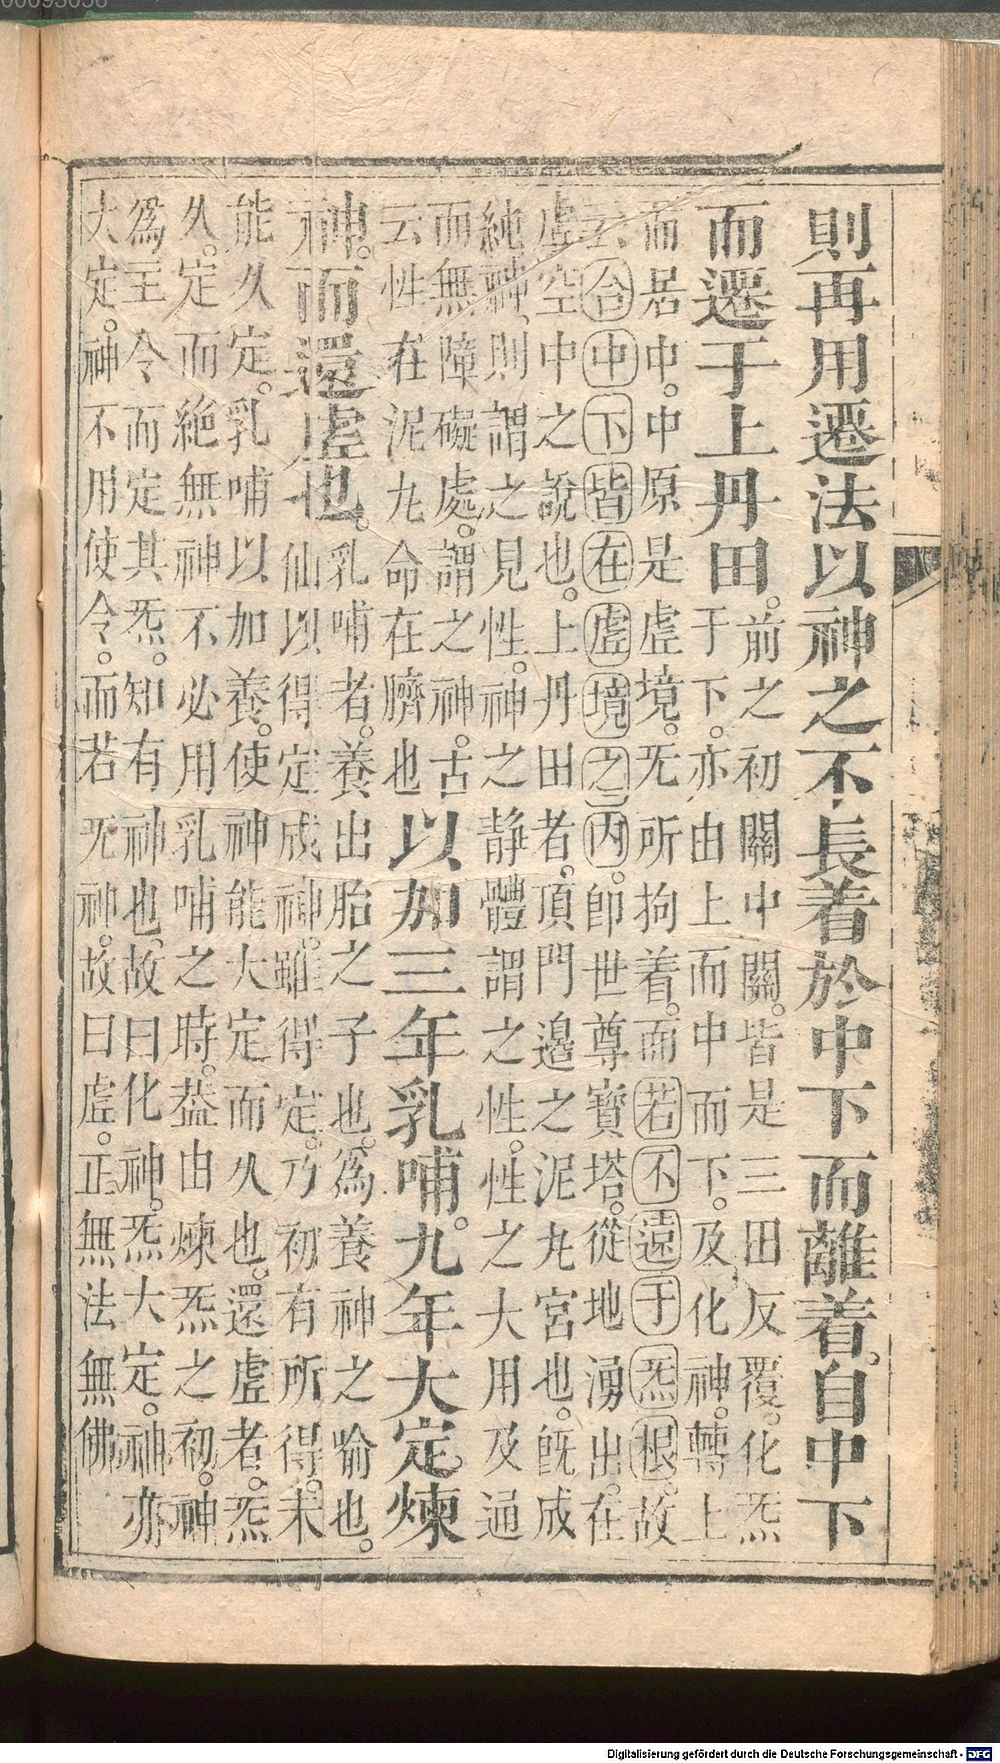 則再用遷法以神之不長着於中下而離着。自中下
而遷于上丹田。
前之初關中關。皆是三田反覆。化炁
于下。亦由上而中而下。及化神。轉上
而居中。中原是虛境。无所拘着。而若不遠于炁根。故
云合中下皆在虛境之内。即世尊寶塔。從地湧出。在
虛空中之說也。上丹田者。頂門邉之泥丸宮也。旣成
純神。則謂之見性。神之靜體謂之性。性之大用及通
而無障礙處。謂之神。古
云性在泥丸命在臍也
以加三年乳哺。九年大定。煉
神。而還虛也。
乳哺者。養出胎之子也。為養神之喻也。
仙以得定成神。雖得定。乃初有所得。未
能久定。乳哺以加養。使神能大定而久也。還虛者。炁
久。定而絶無神不必用乳哺之時。葢由煉炁之初。神
為主令而定其炁。知有神也。故曰化神。炁大定。神亦
大定。神不用使令。而若无神。故曰虛。正無法無佛
00095056
Digitalisierung gefördert durch die Deutsche Forschungsgemeinschaft - DFG